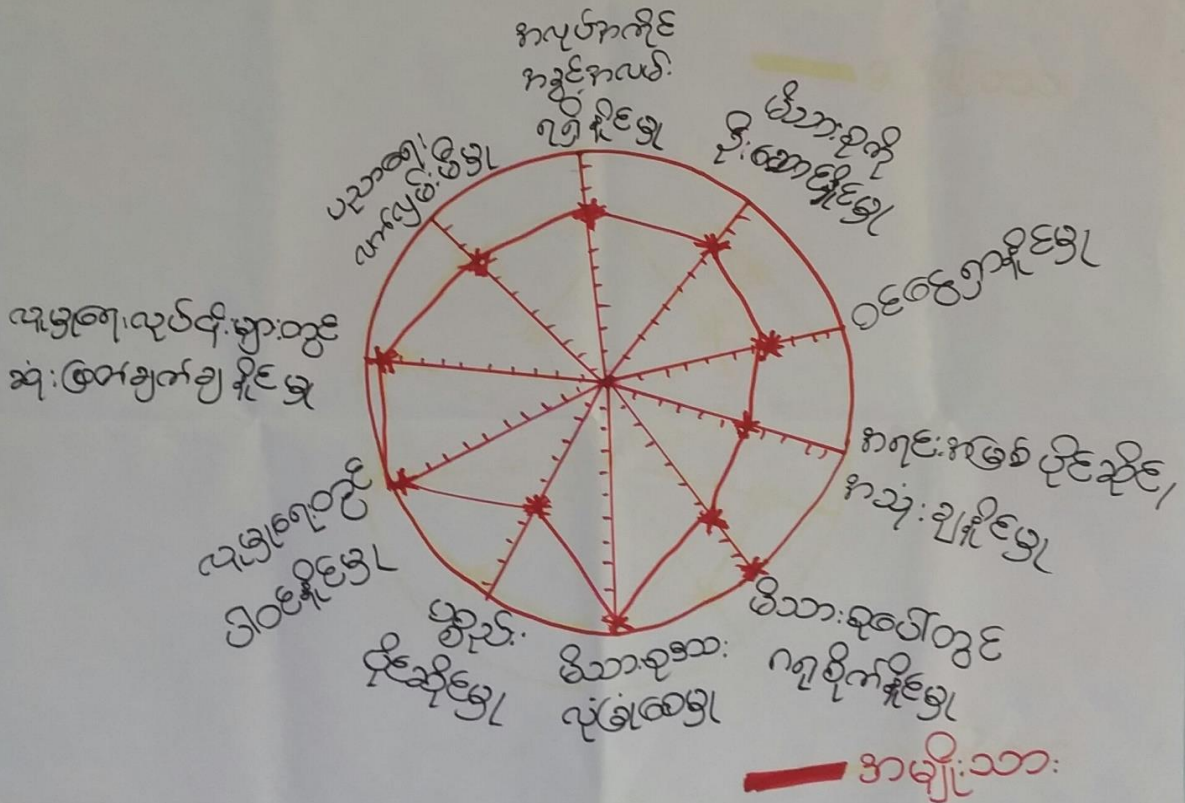 အလုပ်အကိုင်
အခွင့်အလမ်း
ရရှိနိုင်မှု
မိသားစုကို
ဦးဆောင်နိုင်မှု
ဝင်ငွေရှာနိုင်မှု
အရင်းအမြစ် ပိုင်ဆိုင်၊
အသုံးချနိုင်မှု
မိသားစုပေါ်တွင်
ဂရုစိုက်နိုင်မှု
မိသားစုဘေး
လုံခြုံစေမှု
ပစ္စည်း
ပိုင်ဆိုင်မှု
လူမှုရေးတွင်
ပါဝင်နိုင်မှု
လူမှုရေးလုပ်ငန်းများတွင်
ဆုံးဖြတ်ချက်ချနိုင်မှု
ပညာရေး
အမျိုးသား